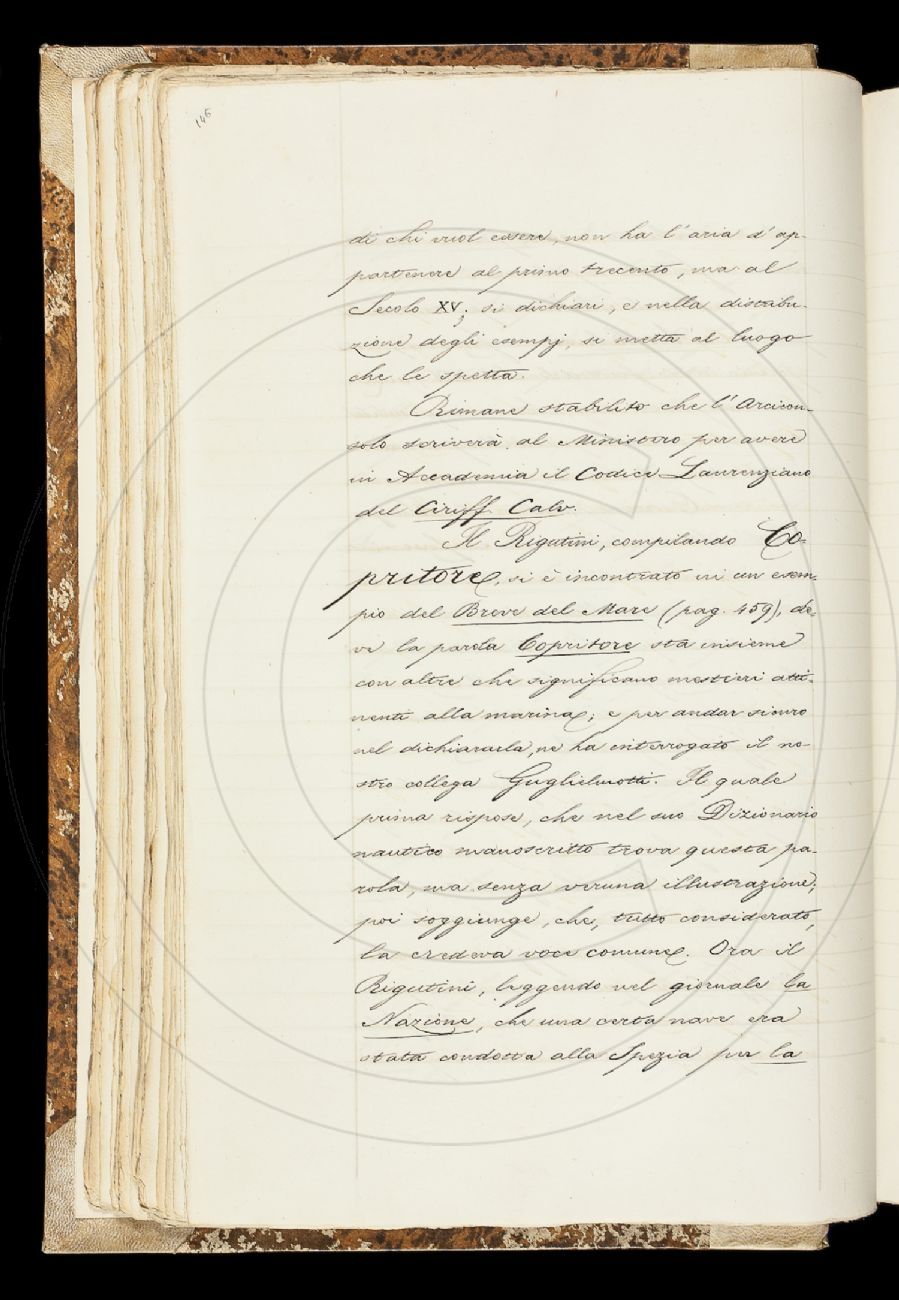 146
di chi vuol essere, non ha l'aria d'ap-
partenere al primo trecento, ma al
Secolo XV; si dichiari, e nella distribu-
zione degli esempj, si metta al luogo
che le spetta.
Rimane stabilito che l'Arcicon-
solo scriverà al Ministero per avere
in Accademia il Codice Laurenziano
del Ciriff. Calv.
Il Rigutini, compilando Co-
pritore, si è incontrato in un esem-
pio del Breve del Mare (pag. 459), do-
ve la parola Copritore sta insieme
con altre che significano mestieri atti-
nenti alla marina; e per andar sicuro
nel dichiararla, ne ha interrogato il no-
stro collega Guglielmotti. Il quale
prima rispose, che nel suo Dizionario
nautico manoscritto trova questa pa-
rola, ma senza veruna illustrazione;
poi soggiunge, che, tutto considerato,
la credeva voce comune. Ora il
Rigutini, leggendo nel giornale la
Nazione, che una certa nave era
stata condotta alla Spezia per la